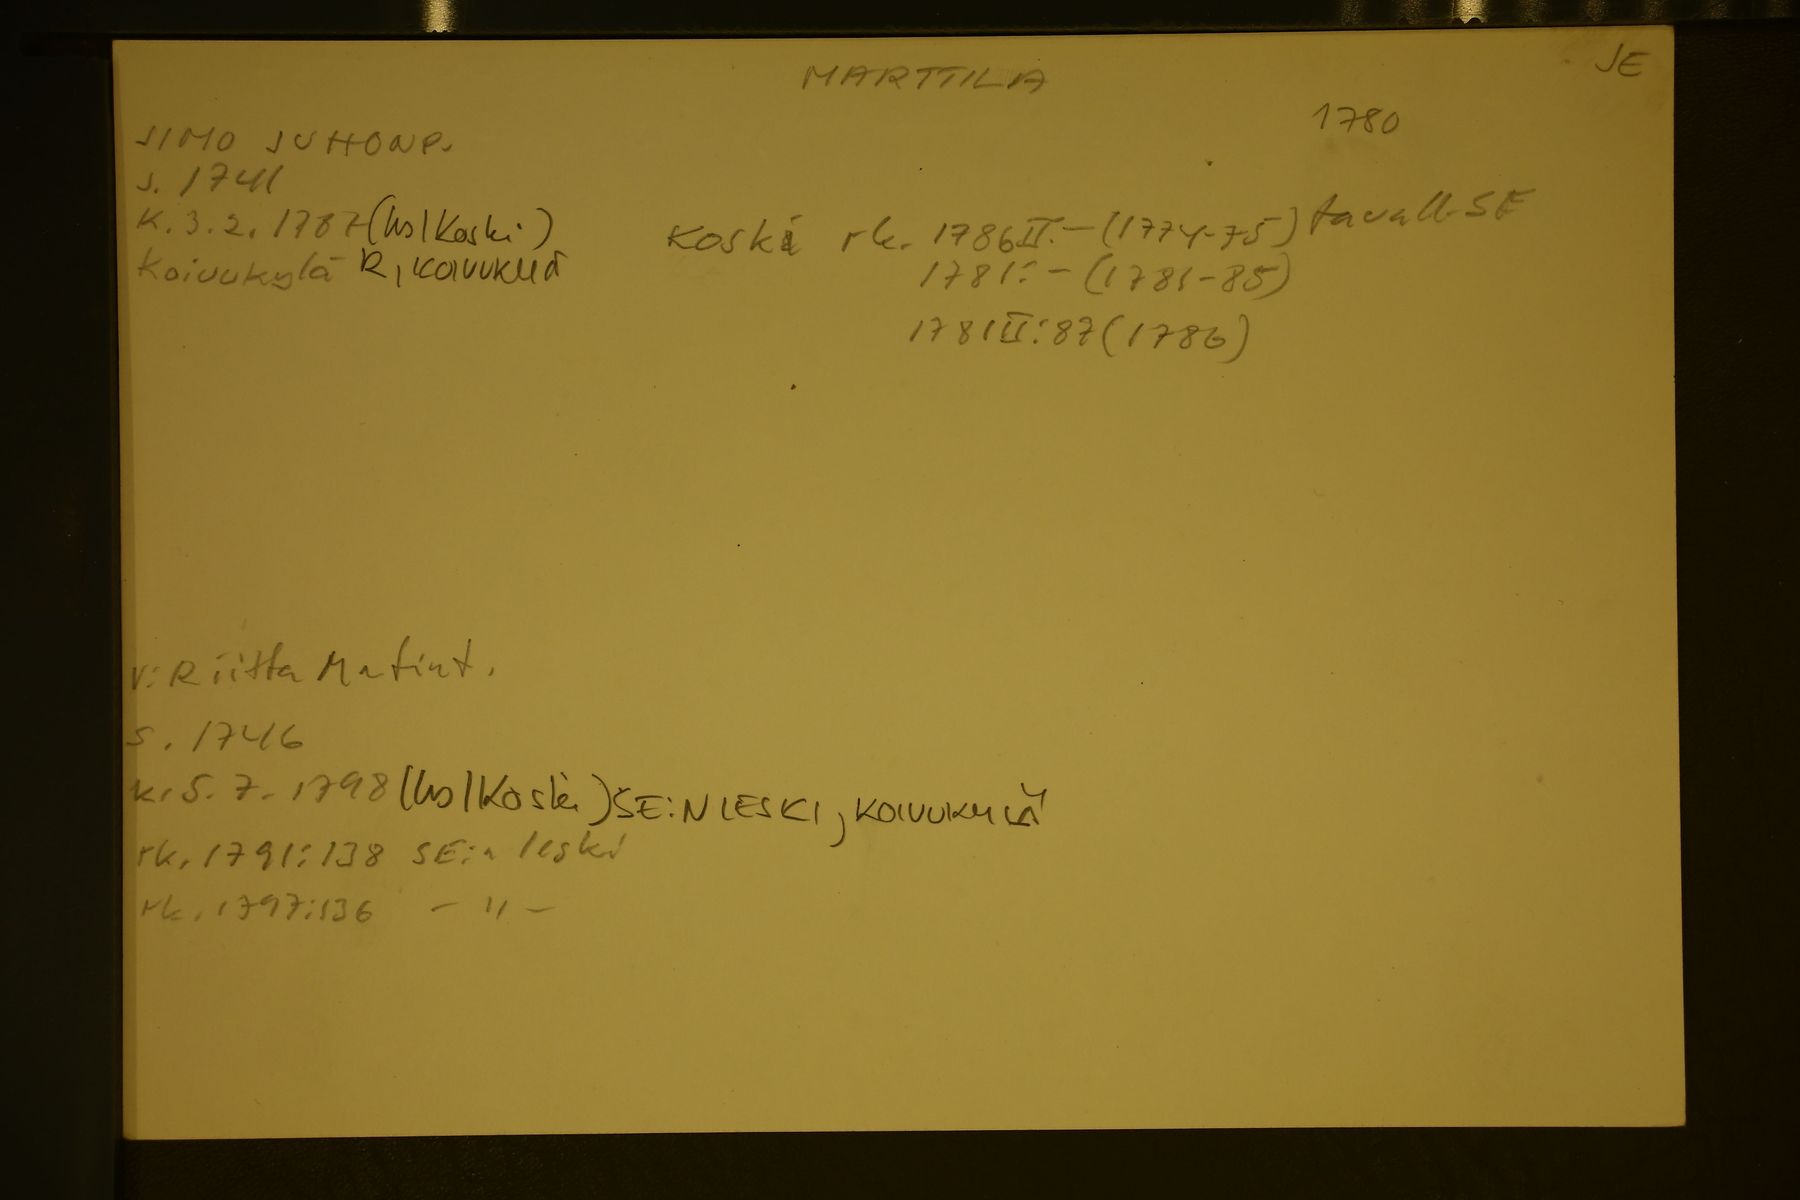 MARTTILA
JE
1780
SIMO JUHONP.
s. 1741
K. 3.2. 1787 (ks/Koski)
Koivukylä R, KOIVUKYLÄ
KOSKI rk. 1786II:-(1774-75) tavall. SE
1781:-(1781-85)
1781II:87(1786)
V: Riitta Matint.
s. 1746
k. 5.7. 1798 (ks/Koski) SE:N LESKI, KOIVUKYLÄ
rk. 1791:138 SE:n leski
rk. 1797:136 -"-